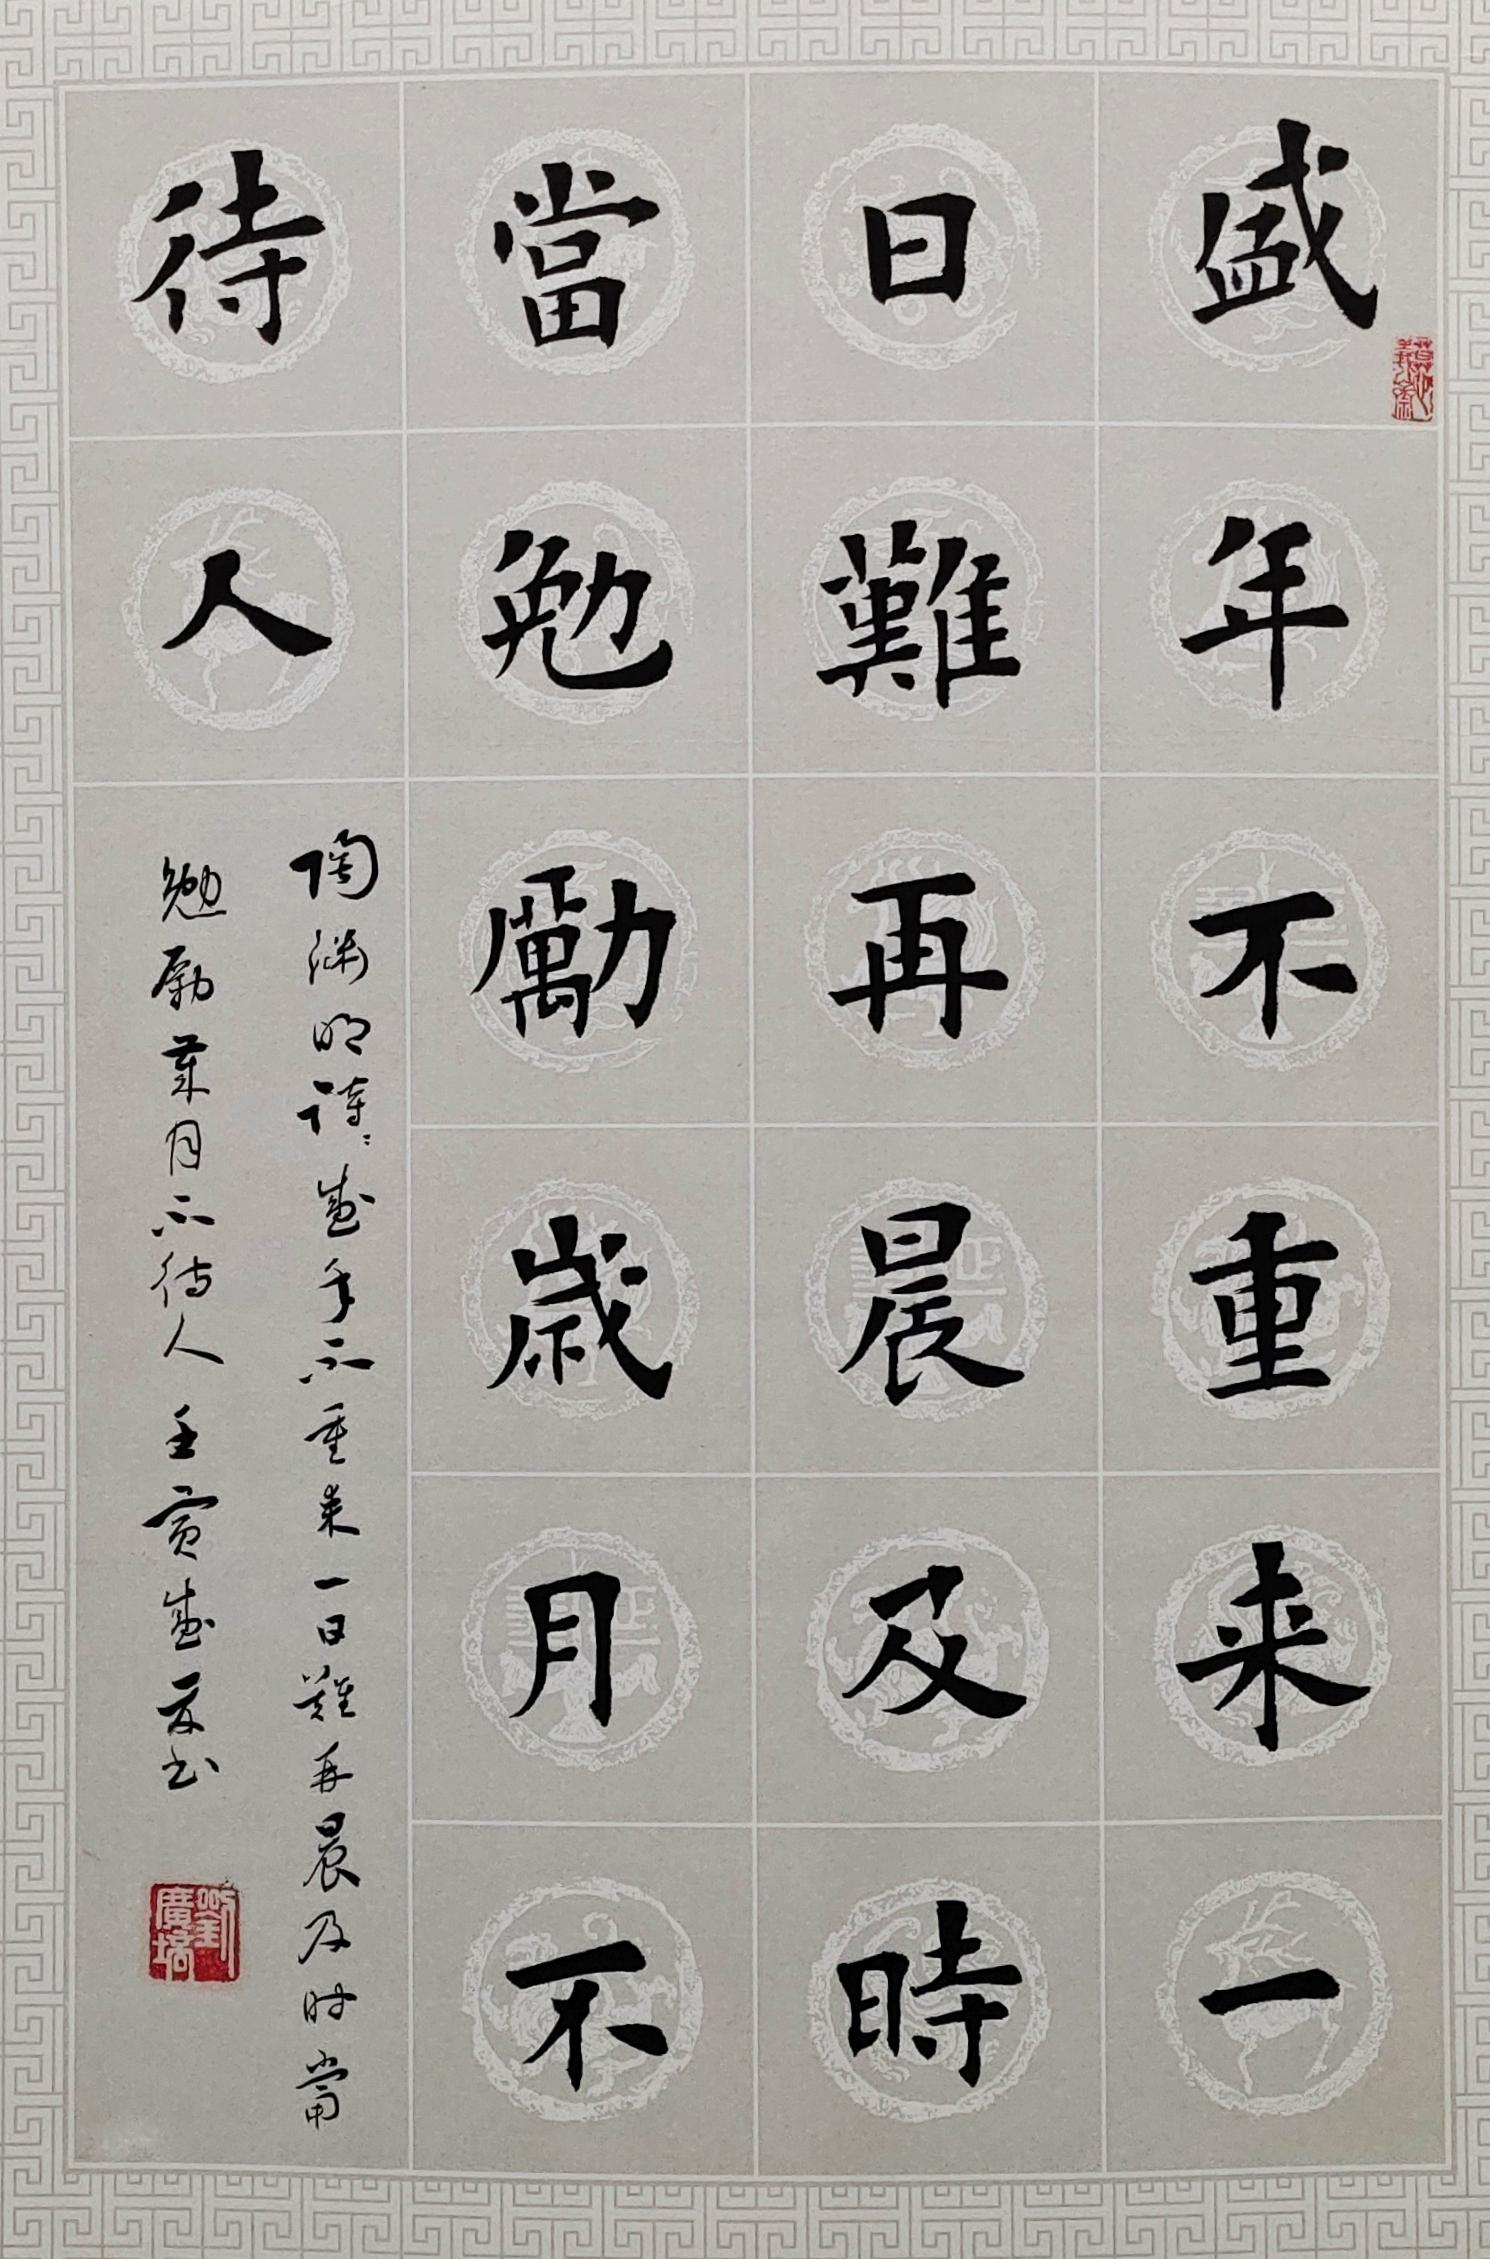 盛年不重来一
日難再晨及時
當勉勵歲月不
待人
陶渊明诗：盛年不重来一日難再晨及时當
勉励歲月不待人壬寅盛夏书
劉廣培